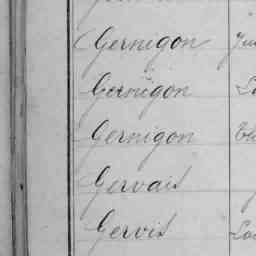 Gernigon
Gernigon
Gernigon
Gervais
Gervis